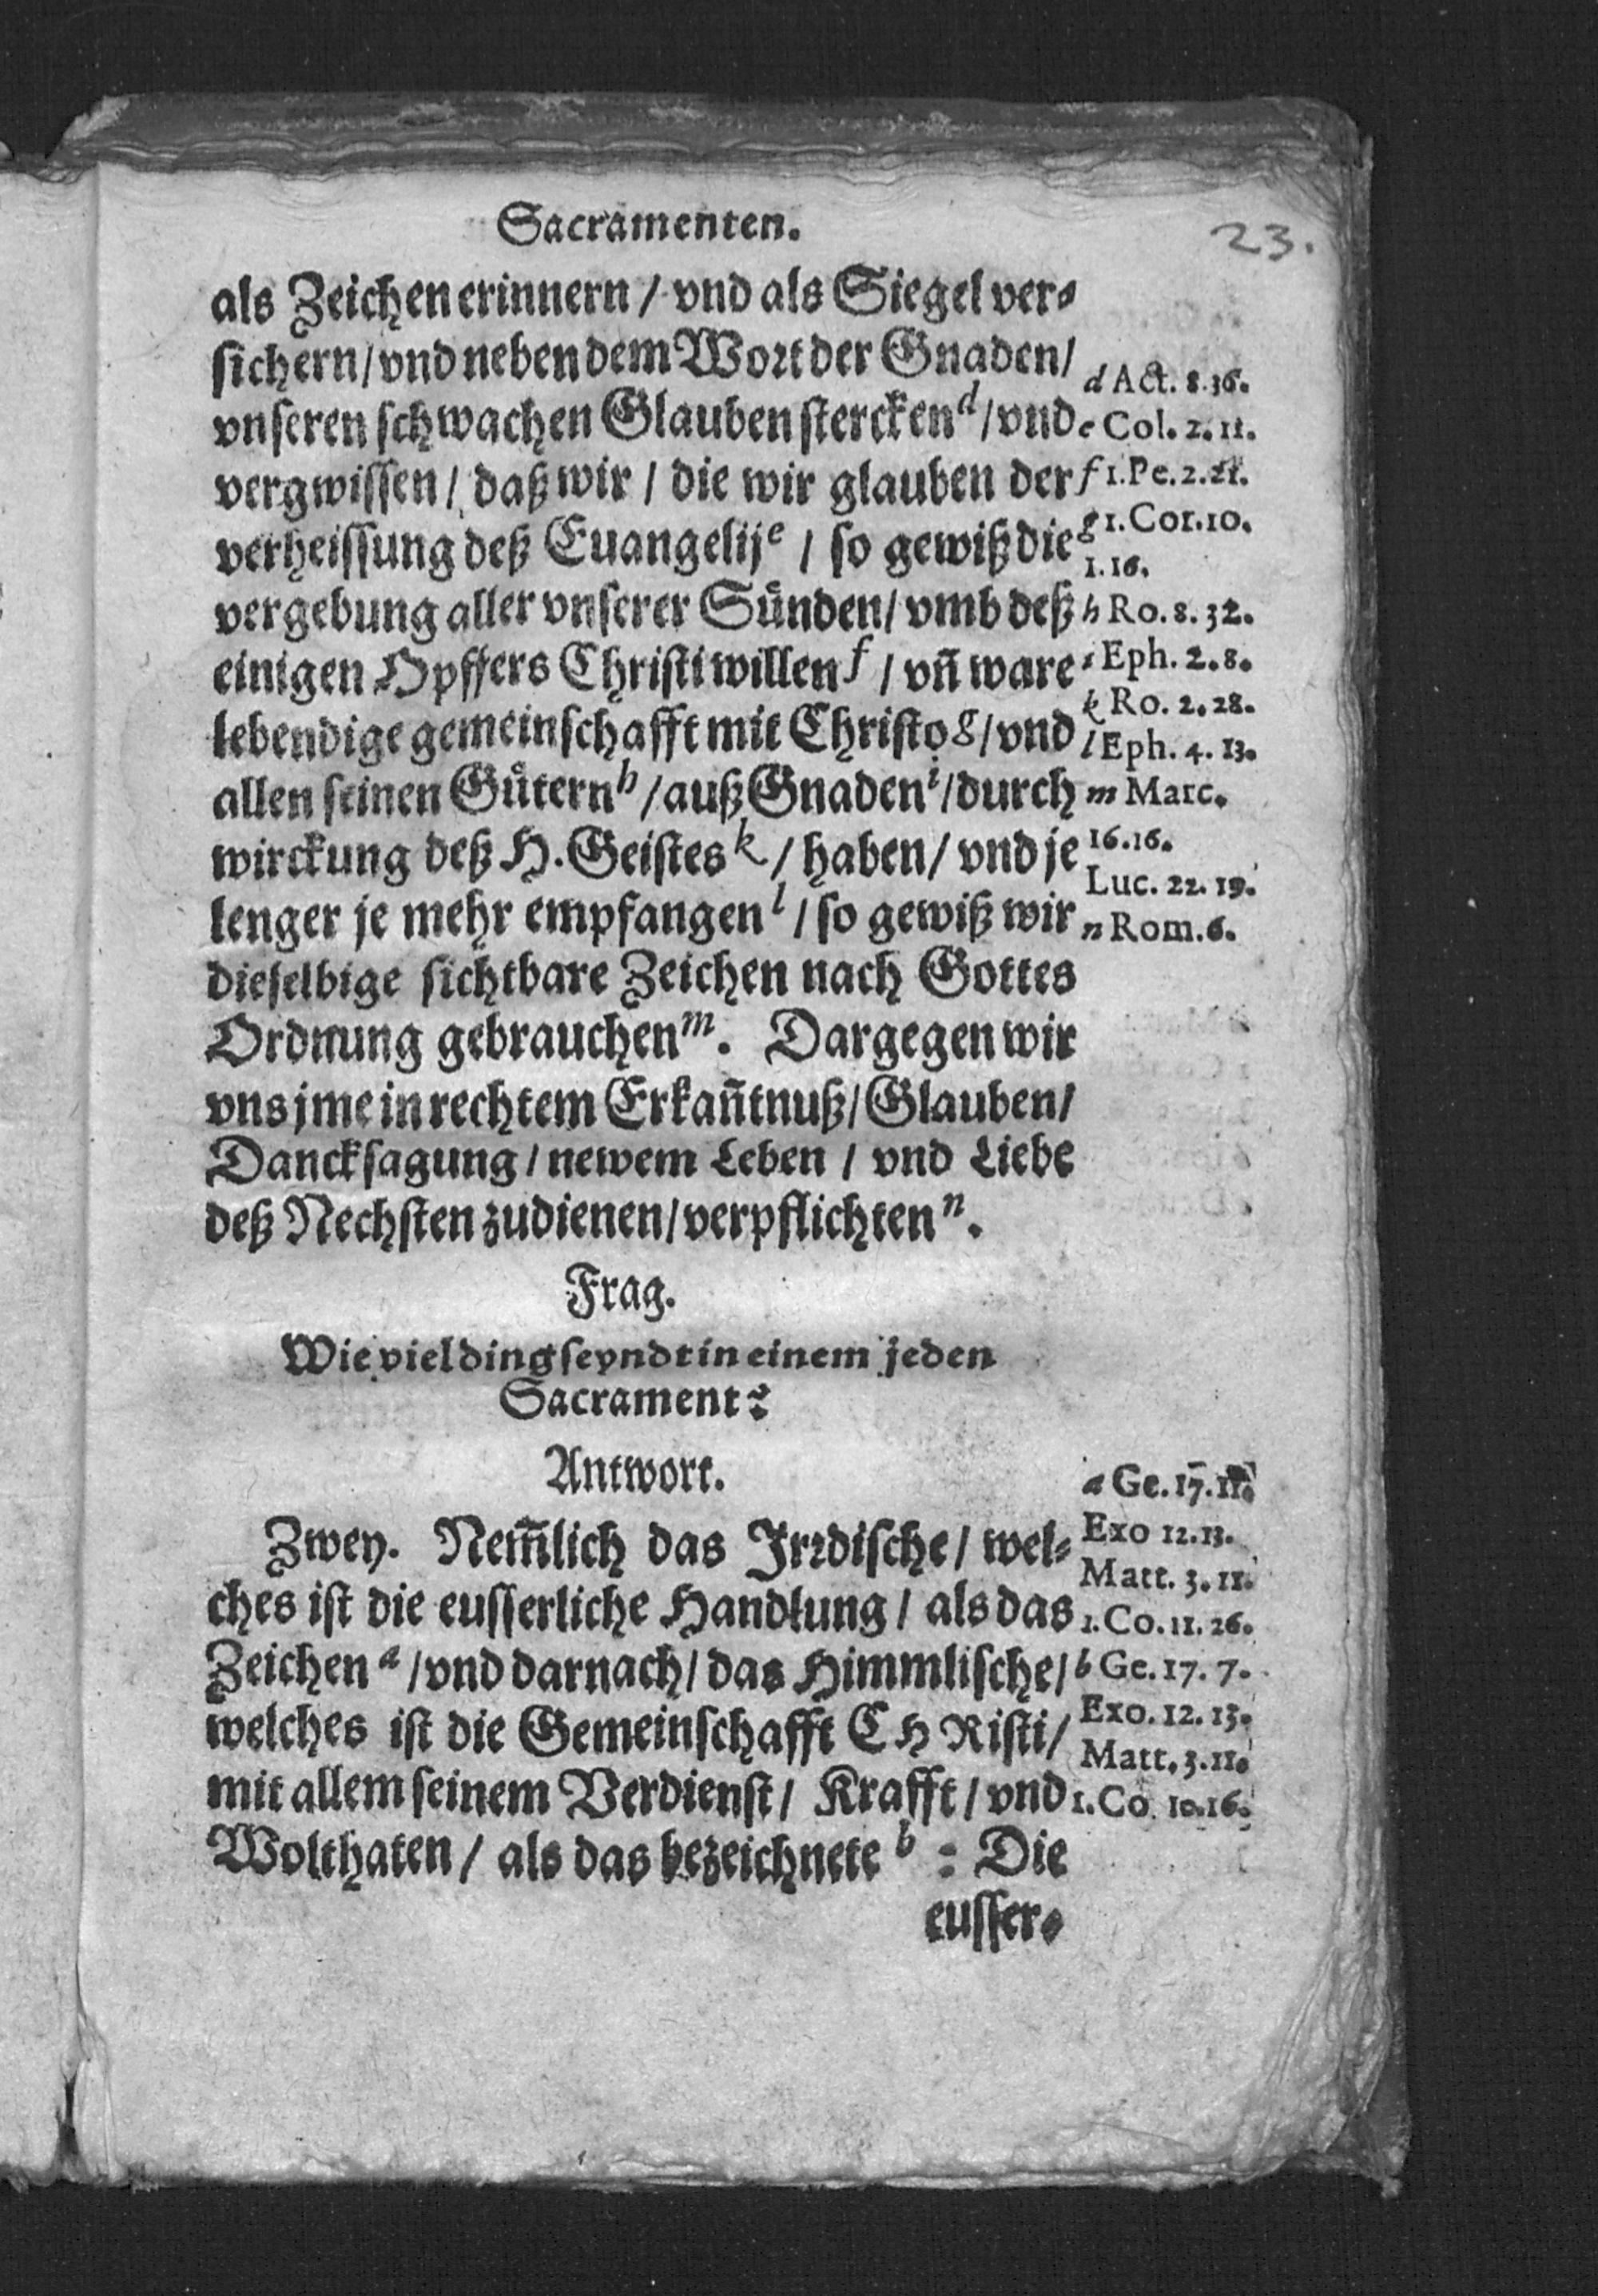 Sacramenten.
23.
als Zeichen erinnern / vnd als Siegel ver⸗
sichern / vnd neben dem Wort der Gnaden /
vnseren schwachen Glauben stercken d / vnd
vergwissen / daß wir / die wir glauben der
verheissung deß Euangelij e / so gewiß die
vergebung aller vnserer Sünden / vmb deß
einigen Opffers Christi willen f / vñ ware
lebendige gemeinschafft mit Christo g / vnd
allen seinen Gütern h / auß Gnaden i / durch
wirckung deß H. Geistes k / haben / vnd je
lenger je mehr empfangen l / so gewiß wir
dieselbige sichtbare Zeichen nach Gottes
Ordnung gebrauchen m. Dargegen wir
vns jme in rechtem Erkañtnuß / Glauben /
Dancksagung / newem Leben / vnd Liebe
deß Nechsten zudienen / verpflichten n.
d Act. 8.36.
e Col. 2.11.
f 1. Pe. 2.21.
g 1. Cor. 10.
1.16.
h Ro. 8.32.
i Eph. 2.8.
k Ro. 2.28.
l Eph. 4.13.
m Marc.
16.16.
Luc. 22.19.
n Rom. 6.
Frag.
Wie viel ding seyndt in einem jeden
Sacrament?
Antwort.
Zwey. Nem̃lich das Jrrdische / wel⸗
ches ist die eusserliche Handlung / als das
Zeichen a / vnd darnach / das Himmlische /
welches ist die Gemeinschafft CHRisti /
mit allem seinem Verdienst / Krafft / vnd
Wolthaten / als das bezeichnete b : Die
eusser⸗
a Ge. 17.11.
Exo 12.13.
Matt. 3.11.
1. Co. 11.26.
b Ge. 17.7.
Exo. 12.13.
Matt. 3.11.
1. Co. 10.16.